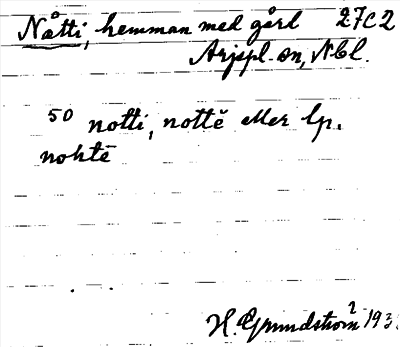 Nåtti, hemman med gård 27C2
Arjspl. sn, Nbl.
50 notti, nottĕ eller lp.
nohtē
H. Grundström 193